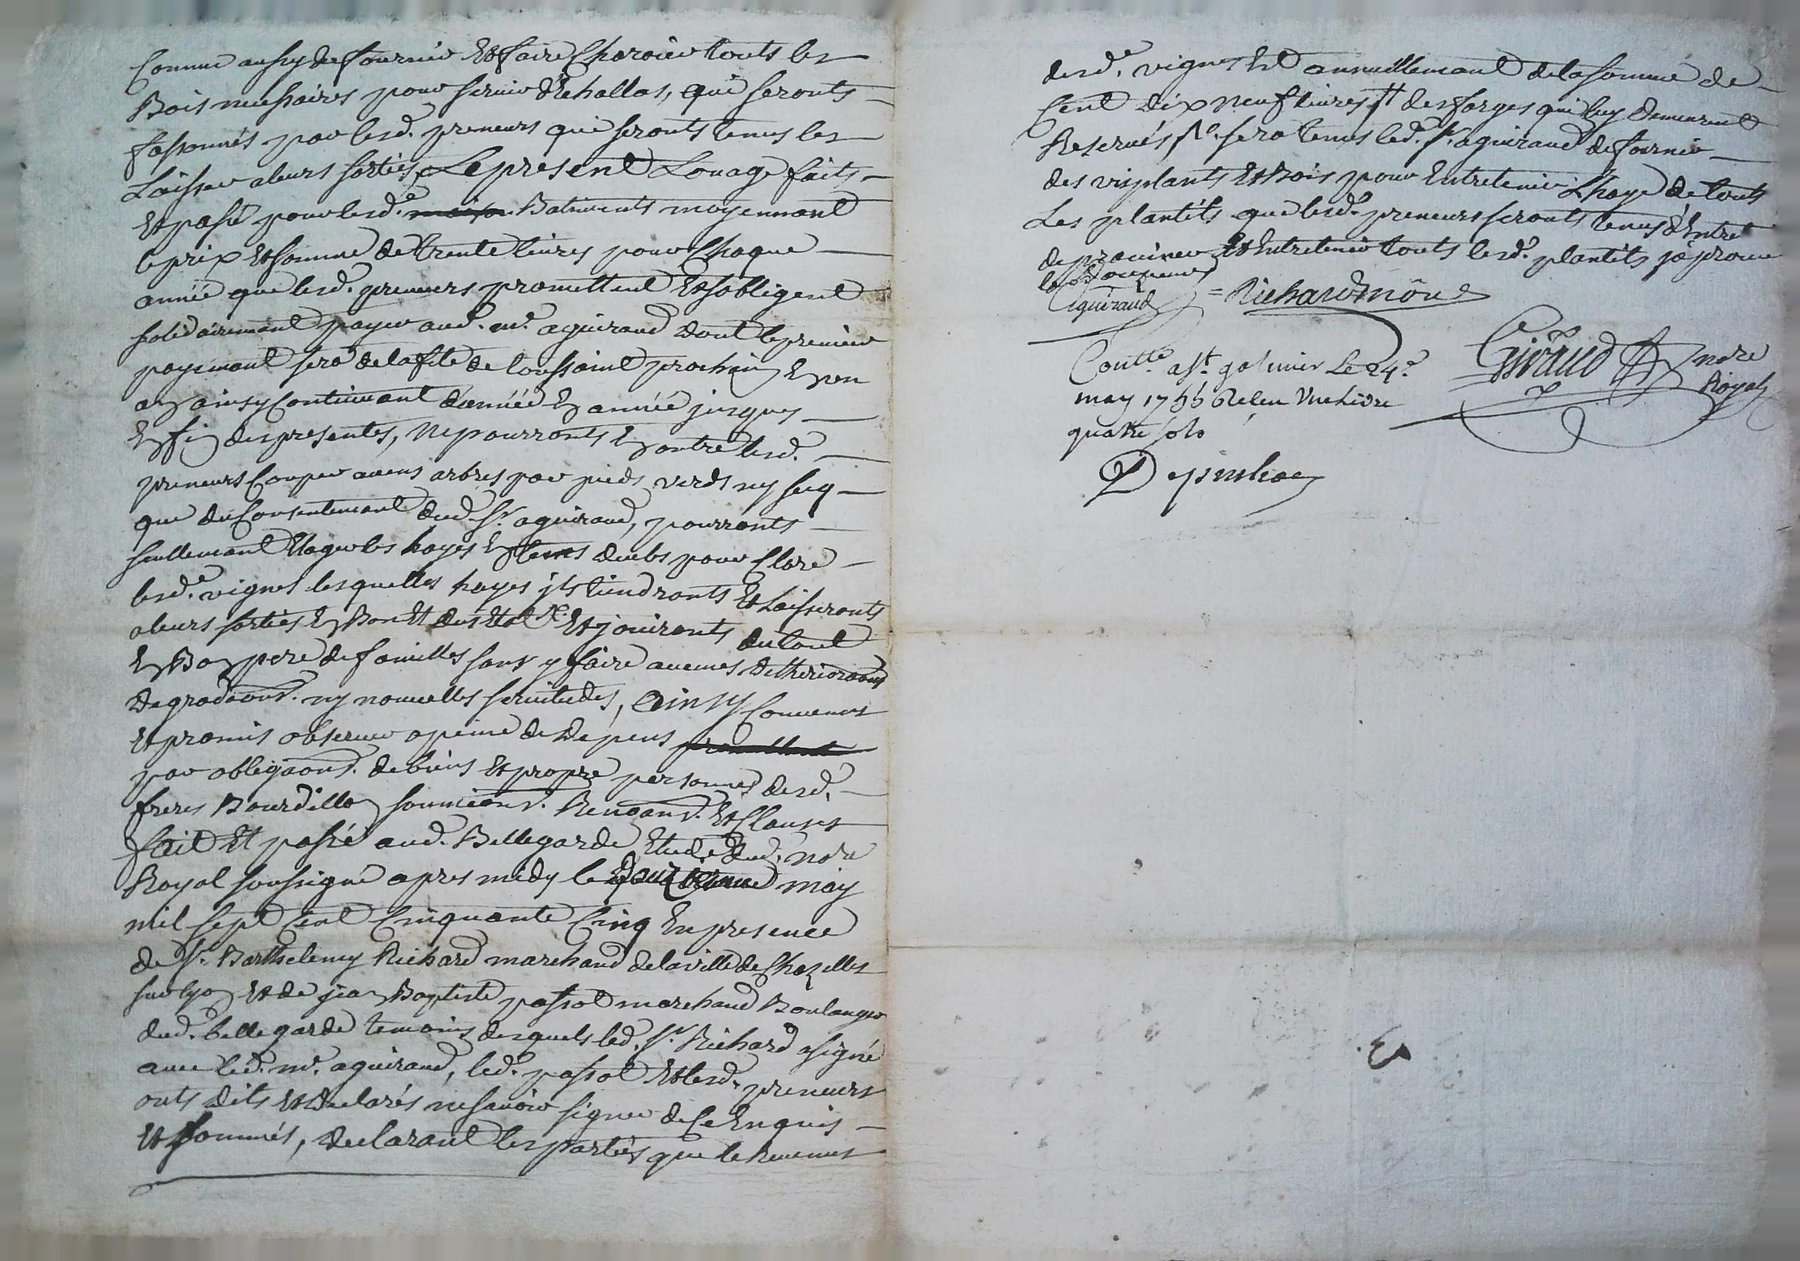 Comme aussy de fournir Et faire Charoier touts les
Bois necessaires pour servir d'Echallas, qui seronts
fassonnés par lesd. preneurs qui seronts tenus les
Laisser a leurs sorties, Le present Louage faits
Et passé pour lesd.^e Batiments moyennant
le prix Et somme de trente livres pour Chaque
année que lesd. preneurs promettent Et s'obligent
solidairement payer aud. m.^e aguiraud dont le premier
payement sera de la fête de toussaint prochain Et en
ainsy Continuant d'année En année jusques
En fin des presentes, Ne pourronts En outre lesd.
preneurs Couper aucuns arbres par pieds verds ny secq
que du Consentement dud. S.^r aguiraud, pourronts
seullement Elaguer les hayes En tems deubs pour Clore
lesd.^e vignes lesquelles hayes jls tiendronts Et Laisseronts
a leurs sorties En Bon Et dus Et jouironts du tout
En Bon pere de famille sans y faire aucunes Detheriora͠ons
Degrada͠ons. ny nouvelles servitudes, Ainsy Convenus
Et promis observer a peine de Depens
par obliga͠ons. de biens Et propre personnes desd.
freres Bourdillon soumi͠ons. Renon͠ons. Et Clauses
fait Et passé aud. Bellegarde Etude dud. no^re
Royal soussigné apres midy le may
mil sept Cent Cinquante Cinq En presence
de S.^r Barthelemy Richard marchand de la ville de Chazelles
sur Lyon Et de jean Baptiste passot marchand Boulanger
dud. bellegarde temoins desquels led. S.^r Richard a signé
avec led. m.^e aguiraud, led. passot Et lesd. preneurs
onts dits Et declarés ne savoir signer de Ce Enquis
Et sommés, declarant les parties que le Revenus
desd.^e vignes Est annuellement de la somme de
Cent dix neuf livres des forges qui luy demeurent
Reservés sera tenus led. S.^r aguiraud de fournir
des visplants Et Bois pour Entretenir L'haye de touts
Les plantéts que lesd.^s preneurs seronts tenus d'Entret
de proviner Et Entretenir touts lesd.^s plantéts
aguiraud = Richard
Cont.^lé a S.^t galmier Le 24.^e
may 1755 Receu Une Livre
quatre sols
Giraud no^re
Royal